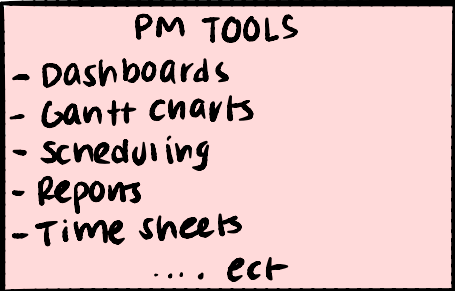 PM TOOLS
- Dashboards
- Gantt charts
- Scheduling
- Reports
- Time sheets
.... ect